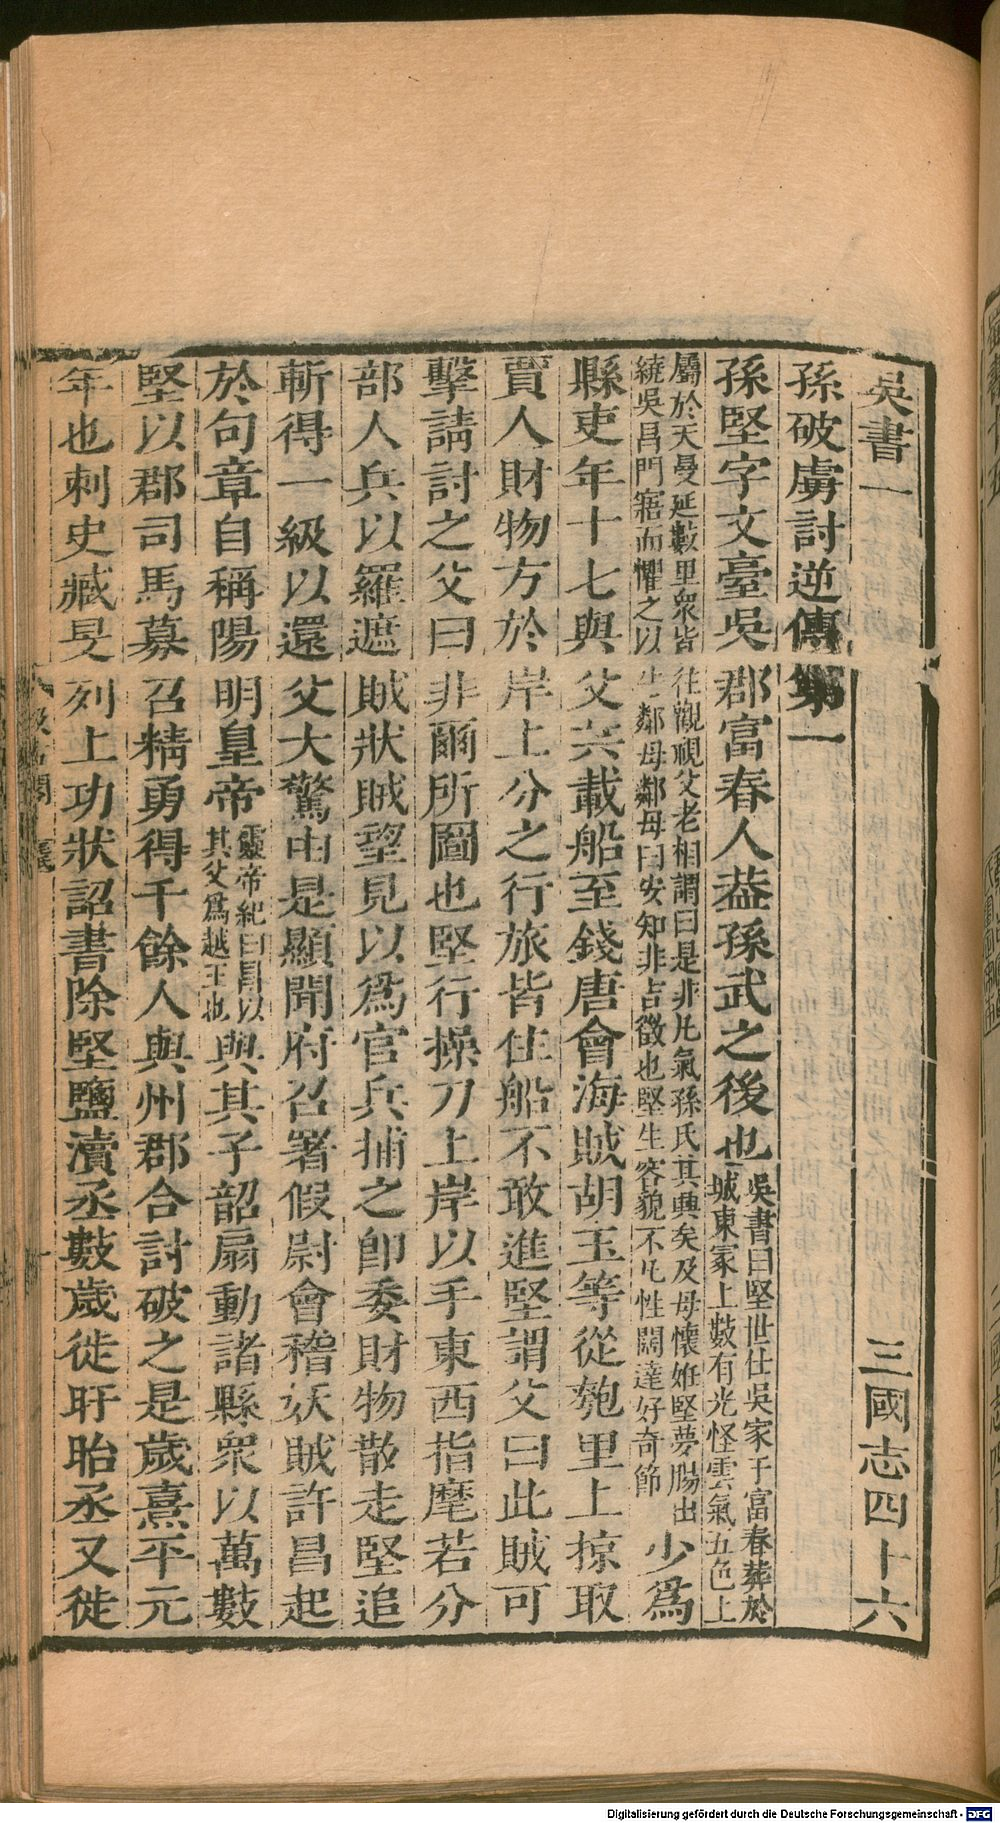 吳書一　三國志四十六
孫破虜討逆傳第一
孫堅字文臺吳郡富春人葢孫武之後也吳書曰堅世仕吳家于富春葬於城東冢上數有光怪雲氣五色上
屬於天曼延數里衆皆往觀視父老相謂曰是非凡氣孫氏其興矣及母懷姙堅夢腸出繞吳昌門寤而懼之以告鄰母鄰母曰安知非吉徵也堅生容貌不凡性闊達好奇節少爲
縣吏年十七與父共載船至錢唐會海賊胡玉等從匏里上掠取
賈人財物方於岸上分之行旅皆住船不敢進堅謂父曰此賊可
擊請討之父曰非爾所圖也堅行操刀上岸以手東西指麾若分
部人兵以羅遮賊狀賊望見以爲官兵捕之卽委財物散走堅追
斬得一級以還父大驚由是顯聞府召署假尉會稽妖賊許昌起
於句章自稱陽明皇帝靈帝紀曰昌以其父爲越王也與其子韶扇動諸縣衆以萬數
堅以郡司馬募召精勇得千餘人與州郡合討破之是歲熹平元
年也刺史臧旻列上功狀詔書除堅鹽瀆丞數歲徙盱眙丞又徙
Digitalisierung gefördert durch die Deutsche Forschungsgemeinschaft - DFG